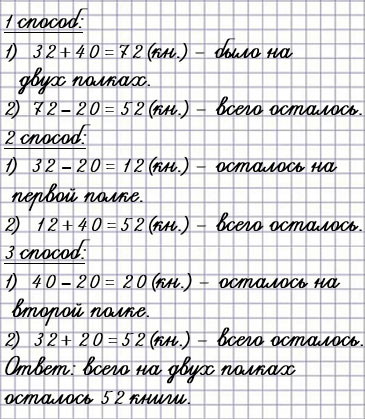 1 способ:
1) 32 + 40 = 72 (кн.) – было на
двух полках.
2) 72 – 20 = 52 (кн.) – всего осталось.
2 способ:
1) 32 – 20 = 12 (кн.) – осталось на
первой полке.
2) 12 + 40 = 52 (кн.) – всего осталось.
3 способ:
1) 40 – 20 = 20 (кн.) – осталось на
второй полке.
2) 32 + 20 = 52 (кн.) – всего осталось.
Ответ: всего на двух полках
осталось 52 книги.